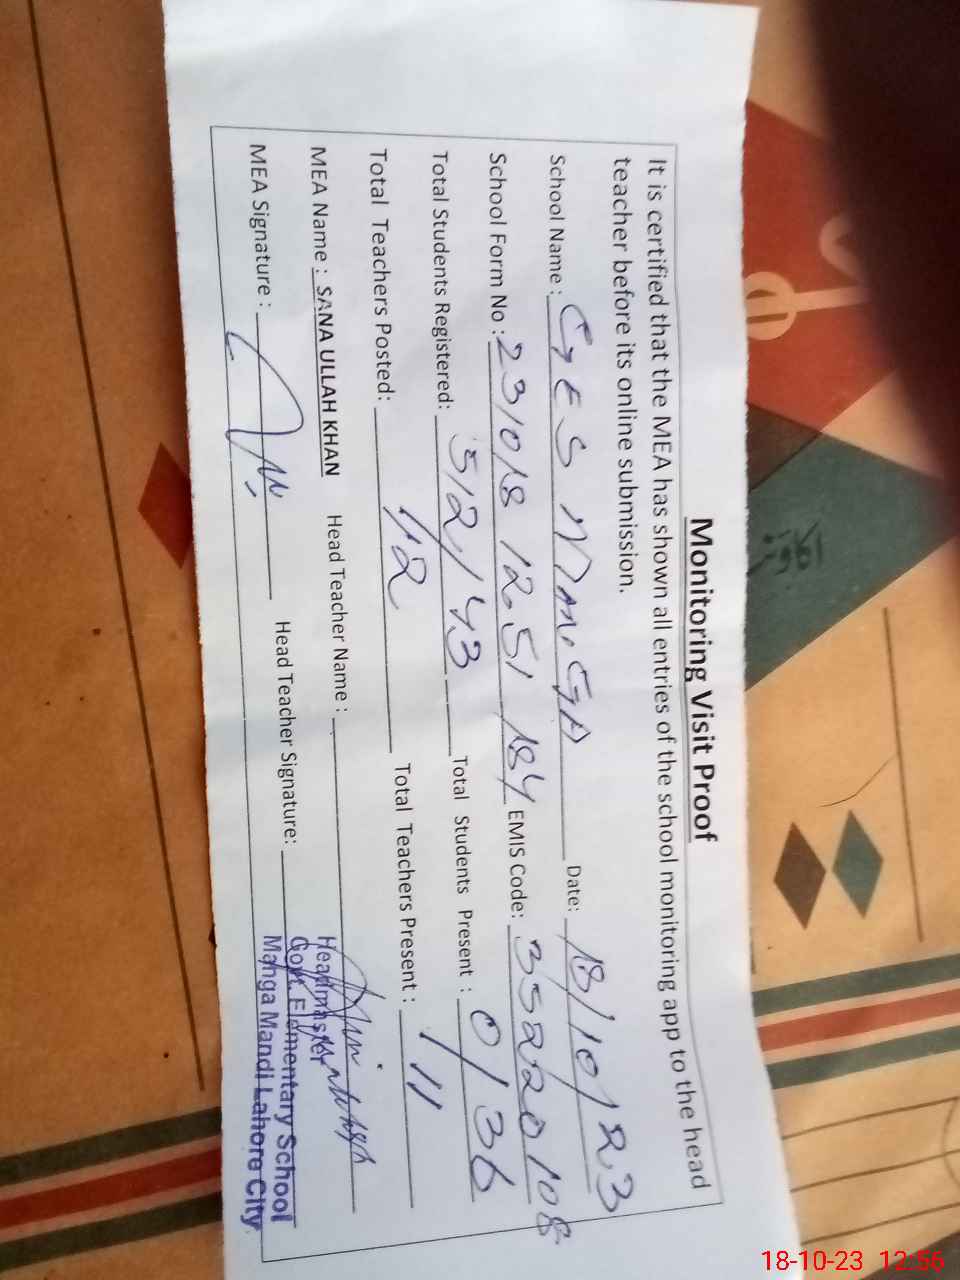 Monitoring Visit Proof
It is certified that the MEA has shown all entries of the school monitoring app to the head
teacher before its online submission.
School Name : GES Date: 18/10/23
School Form No : 231018 1251 184 EMIS Code: 35220108
Total Students Registered: 512/43 Total Students Present : 0/36
Total Teachers Posted: 12 Total Teachers Present : 11
MEA Name : SANA ULLAH KHAN Head Teacher Name :
MEA Signature : Head Teacher Signature:
Headmaster
Govt. Elementary School
Manga Mandi Lahore City
18-10-23 12:56